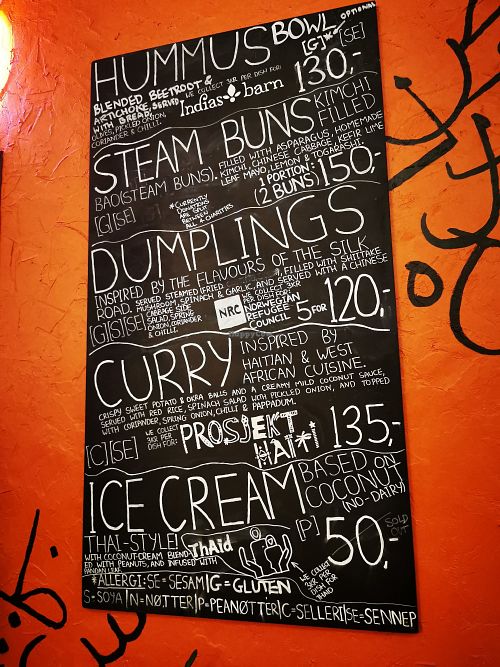 HUMMUS BOWL
OPTIONAL
[G]*[SE]
BLENDED BEETROOT &
ARTICHOKE, SERVED
WITH BREAD,
PICKLED ONION,
CORIANDER & CHILLI.
WE COLLECT 3KR PER DISH FOR:
Indias barn
130,-
STEAM BUNS
KIMCHI
FILLED
BAO(STEAM BUNS), FILLED WITH ASPARAGUS, HOMEMADE
KIMCHI, CHINESE CABBAGE, KEFIR LIME
LEAF MAYO, LEMON & TOGARASHI.
[G][SE]
*CURRENTLY
DONATIONS
ARE SPLIT
BETWEEN
ALL CHARITIES
1 PORTION:
(2 BUNS)
150,-
DUMPLINGS
INSPIRED BY THE FLAVOURS OF THE SILK
ROAD. SERVED STEAMED/FRIED, FILLED WITH SHIITAKE
MUSHROOM, SPINACH & GARLIC, AND SERVED WITH A CHINESE
CABBAGE SIDE
SALAD, SPRING
ONION, CORIANDER
& CHILLI.
[G][S][SE]
NRC
WE COLLECT 3KR
PER DISH FOR:
NORWEGIAN
REFUGEE
COUNCIL
5 FOR
120,-
CURRY
INSPIRED BY
HAITIAN & WEST
AFRICAN CUISINE.
CRISPY SWEET POTATO & OKRA BALLS AND A CREAMY MILD COCONUT SAUCE,
SERVED WITH RED RICE, SPINACH SALAD WITH PICKLED ONION, AND TOPPED
WITH CORIANDER, SPRING ONION, CHILLI & PAPPADUM.
[C][SE]
WE COLLECT
3KR PER
DISH FOR:
PROSJEKT
HAITI
135,-
ICE CREAM
BASED ON
COCONUT
(NO-DAIRY)
[P]
50,-
SOLD
OUT
THAI-STYLE!
WITH COCONUT-CREAM BLEND-
ED WITH PEANUTS, AND INFUSED WITH
PANDAN LEAF.
ThAid
WE COLLECT
3KR PER
DISH FOR
THAID
*ALLERGI: SE=SESAM|G=GLUTEN
S=SOYA|N=NØTTER|P=PEANØTTER|C=SELLERI|SE=SENNEP